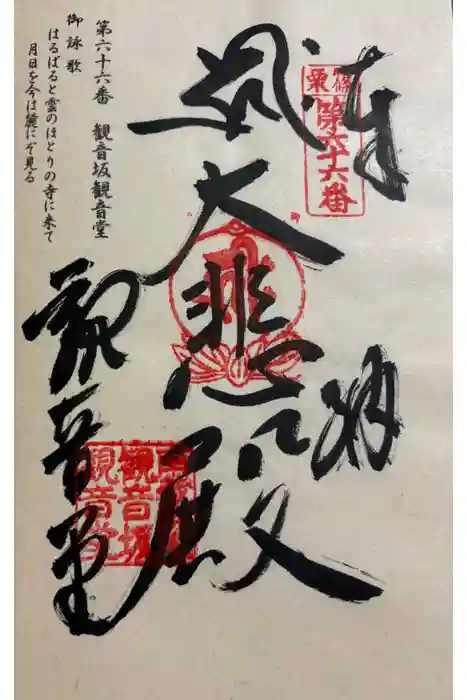 奉拝
篠栗
第六十六番
大悲殿
観音堂
観音坂
観音堂
第六十六番　観音坂観音堂
御詠歌
はるばると雲のほとりの寺に来て
月日を今は麓にぞ見る